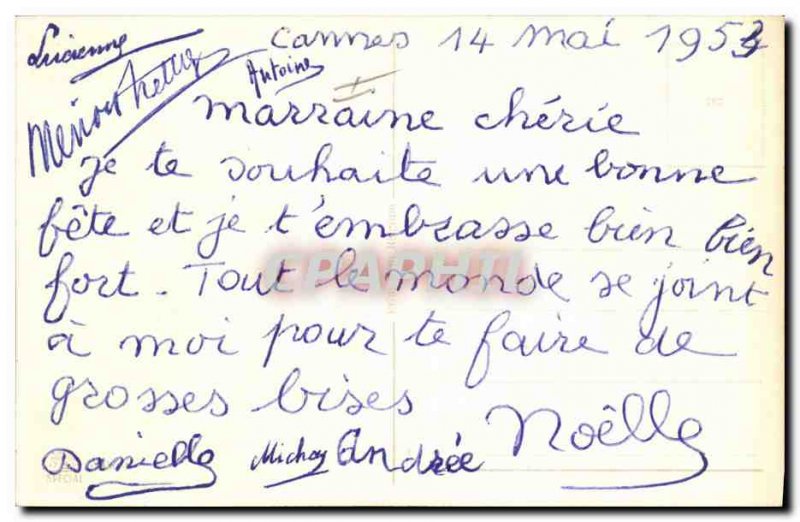 Lucienne
Cannes 14 mai 1953
Antoine
Marraine chérie
je te souhaite une bonne
fête et je t'embrasse bien bien
fort. Tout le monde se joint
à moi pour te faire de
grosses bises
Noëlle
Danielle
Andrée
SPECIAL
CPAPHIL